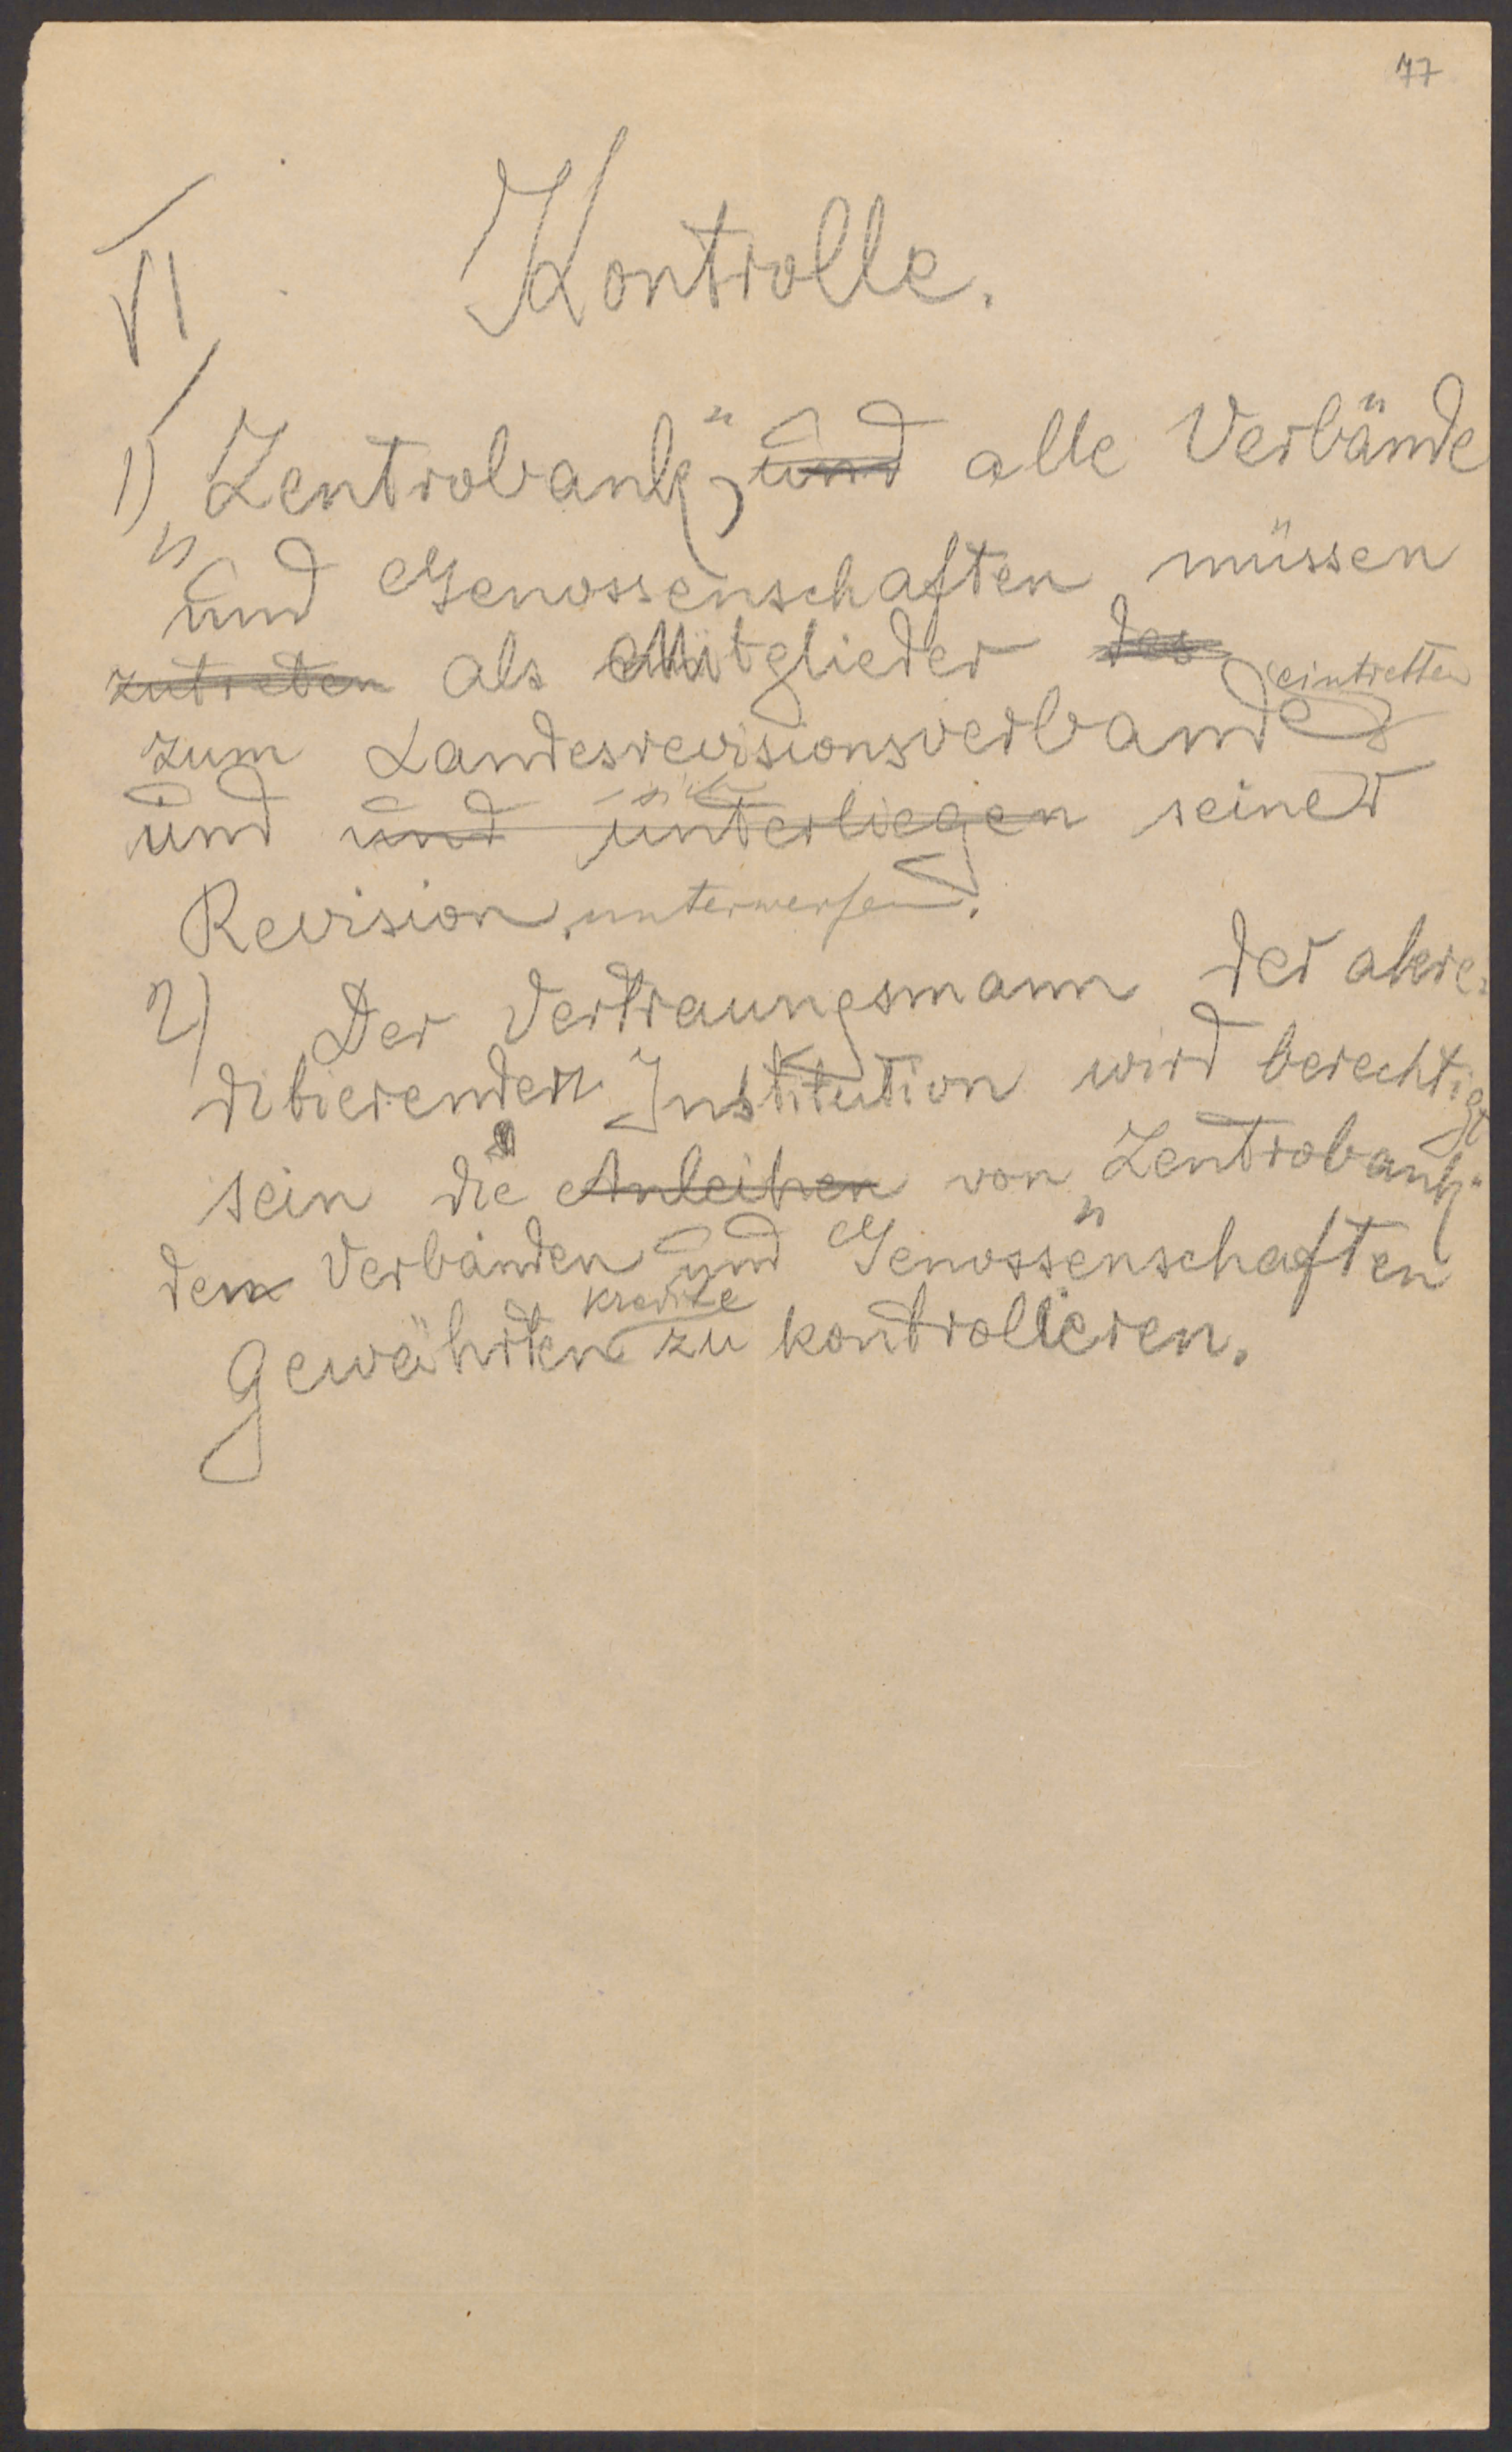 77
VI Kontrolle.
1) „Zentrobank", und alle Verbände
und Genossenschaften müssen
zutreten als Mitglieder des eintretten
zum Landesrevisionsverbande
und und sich unterliegen seiner
Revision unterwerfen.
2) Der Vertraungsmann der akre-
ditierenden Institution wird berechtigt
sein die Anleihen von „Zentrobank"
den Verbänden und Genossenschaften
gewährten Kredite zu kontrollieren.